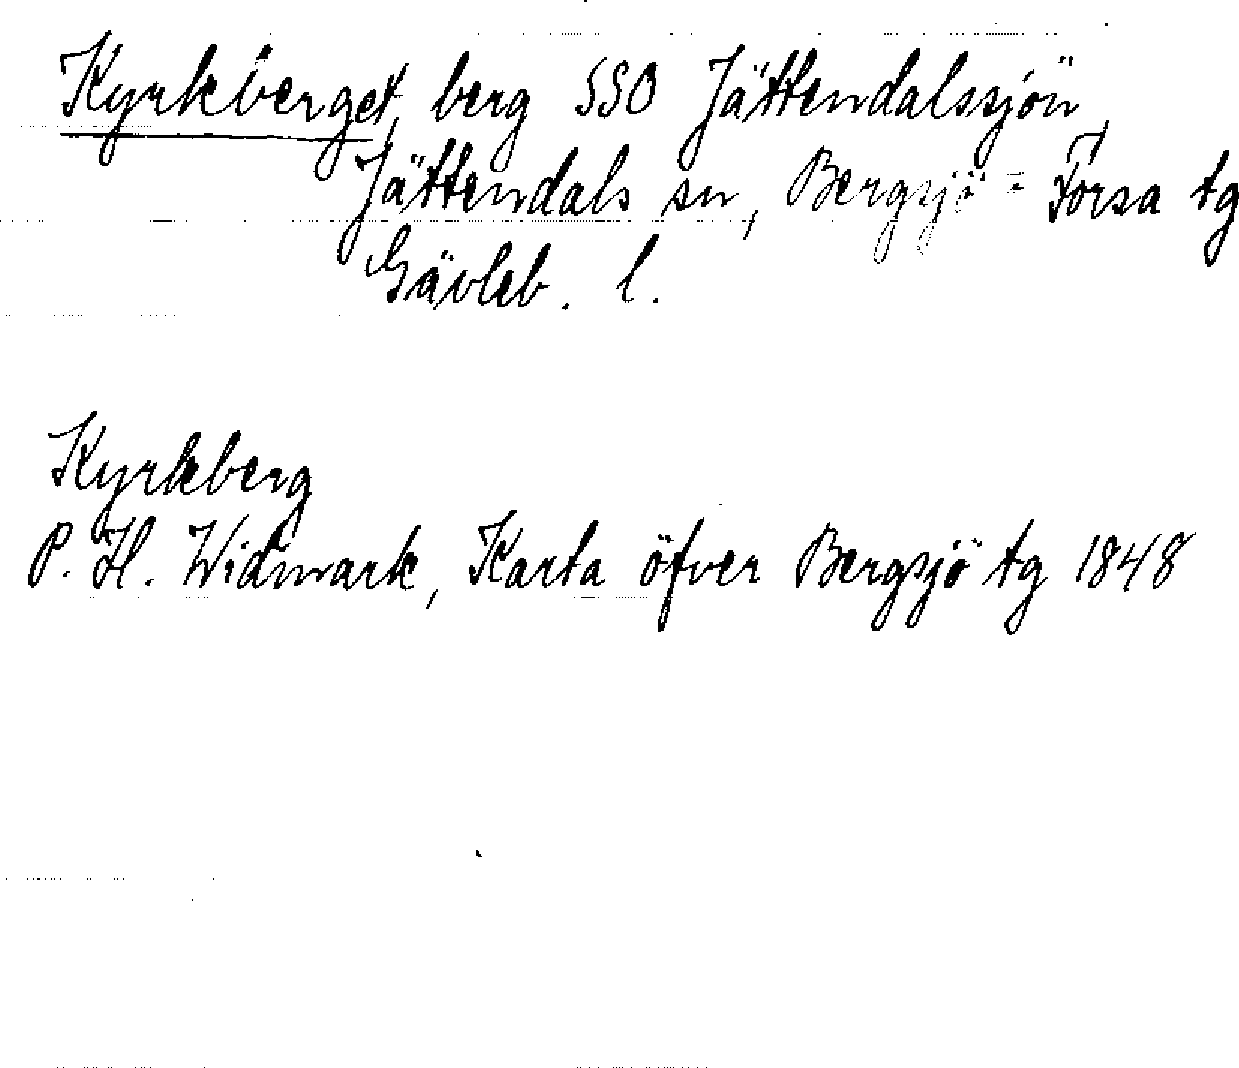 Kyrkberget, berg SSO Jättendalssjön,
Jättendals sn, Bergsjö-Forsa tg
Gävleb. l.
Kyrkberg
P. H. Widmark, Karta öfver Bergsjö tg 1848